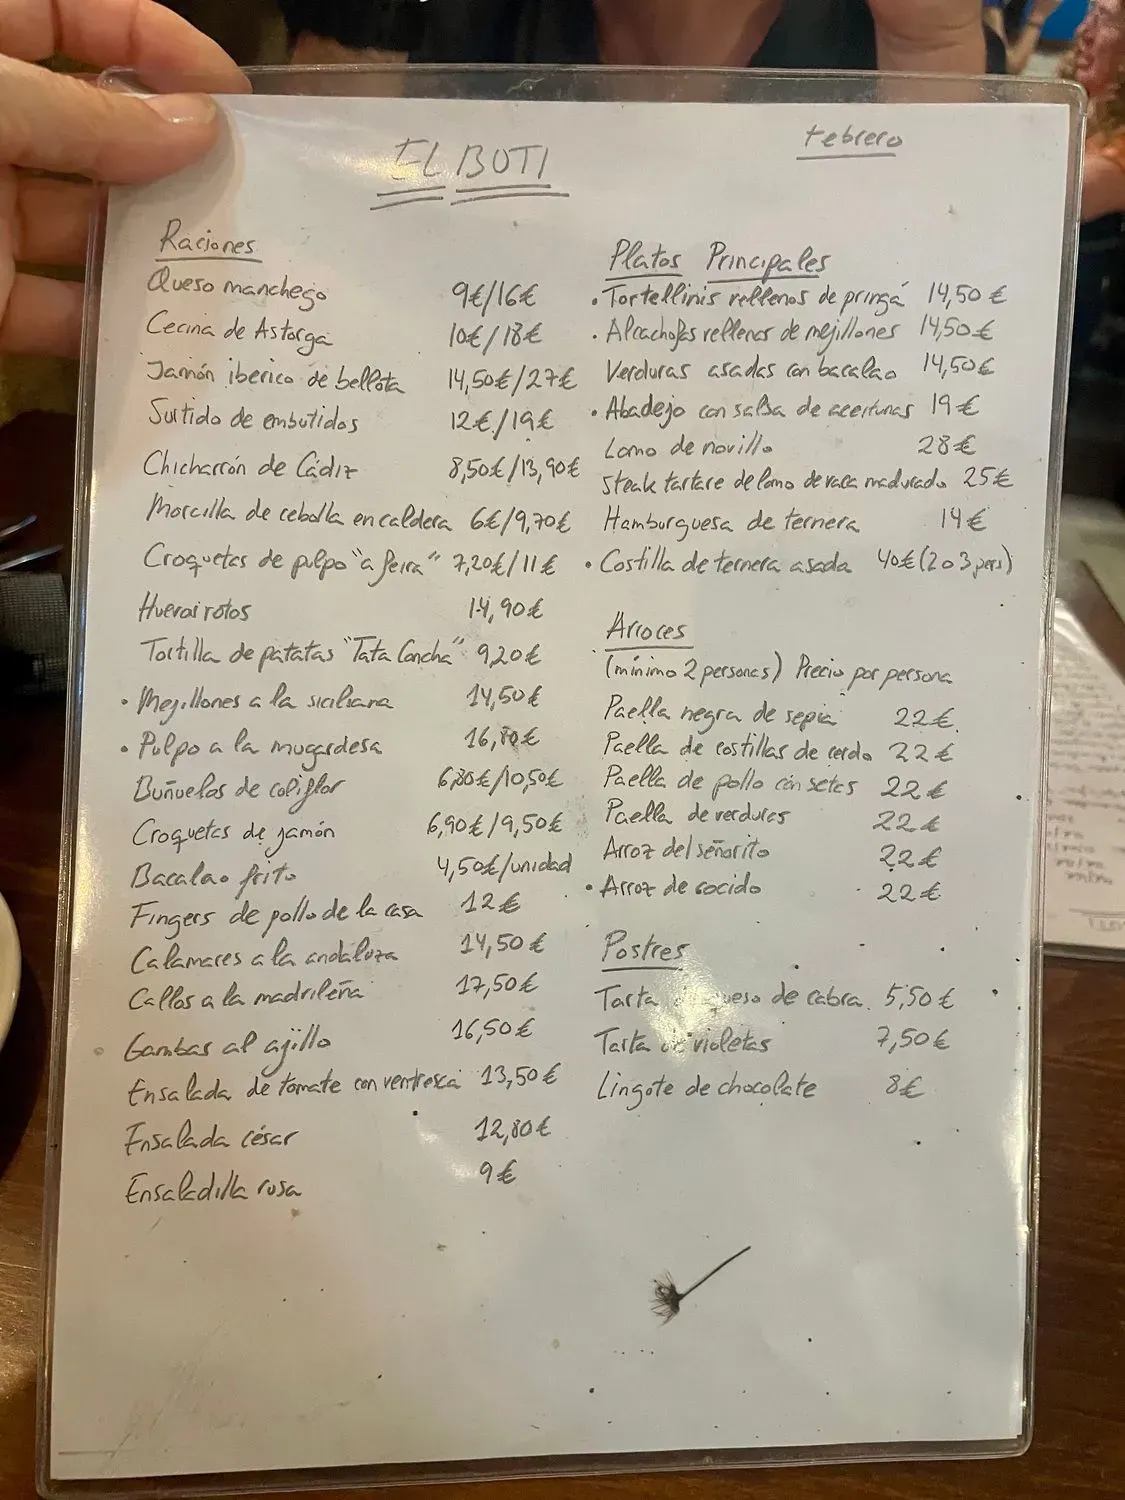 EL BUTI
Febrero
Raciones
Queso manchego 9€/16€
Cecina de Astorga 10€/18€
Jamón iberico de bellota 14,50€/27€
Surtido de embutidos 12€/19€
Chicharrón de Cádiz 8,50€/13,90€
Morcilla de cebolla en caldera 6€/9,70€
Croquetas de pulpo "a feira" 7,20€/11€
Huevos rotos 14,90€
Tortilla de patatas "Tata Concha" 9,20€
• Mejillones a la siciliana 14,50€
• Pulpo a la mugardesa 16,80€
Buñuelos de coliflor 6,80€/10,50€
Croquetas de jamón 6,90€/9,50€
Bacalao frito 4,50€/unidad
Fingers de pollo de la casa 12€
Calamares a la andaluza 14,50€
Callos a la madrileña 17,50€
Gambas al ajillo 16,50€
Ensalada de tomate con ventresca 13,50€
Ensalada césar 12,80€
Ensaladilla rusa 9€
Platos Principales
• Tortellinis rellenos de pringá 14,50€
• Alcachofas rellenas de mejillones 14,50€
Verduras asadas con bacalao 14,50€
• Abadejo con salsa de aceitunas 19€
Lomo de novillo 28€
Steak tartare de lomo de vaca madurado 25€
Hamburguesa de ternera 14€
• Costilla de ternera asada 40€ (2 o 3 pers)
Arroces
(mínimo 2 personas) Precio por persona
Paella negra de sepia 22€
Paella de costillas de cerdo 22€
Paella de pollo con setas 22€
Paella de verduras 22€
Arroz del señorito 22€
• Arroz de cocido 22€
Postres
Tarta de queso de cabra 5,50€
Tarta de violetas 7,50€
Lingote de chocolate 8€